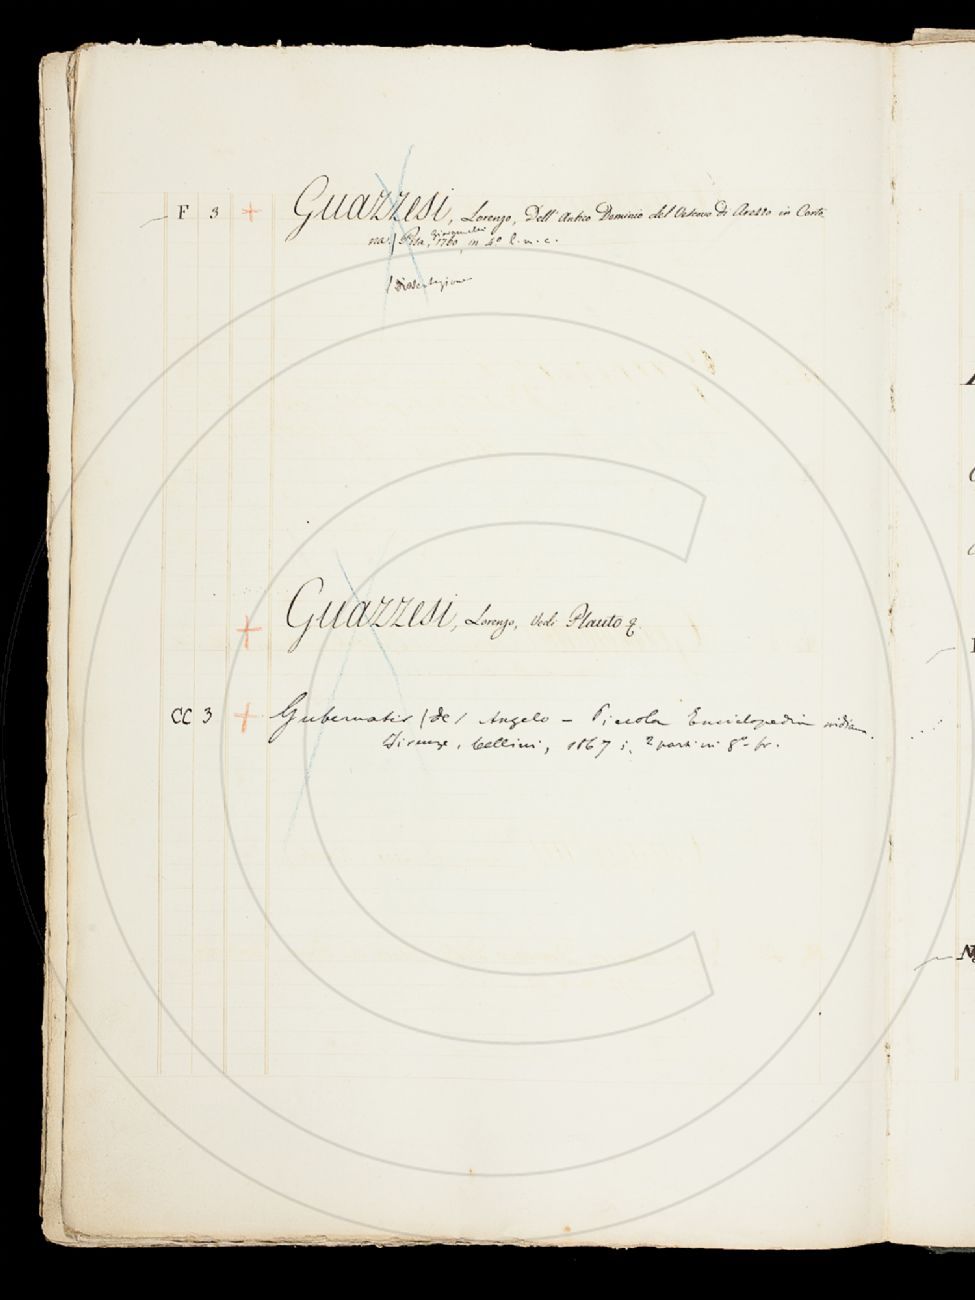 F 3 + Guazzesi, Lorenzo, Dell' Antico Dominio del Vescovo di Arezzo in Corto
na. / Pisa, 1760, in 4º l. n. c.
/ Dissertazione
+ Guazzesi, Lorenzo, Vedi Plauto
CC 3 + Gubernatis / de / Angelo – Piccola Enciclopedia indiana.
Firenze, Bellini, 1867 2 parti in 8º